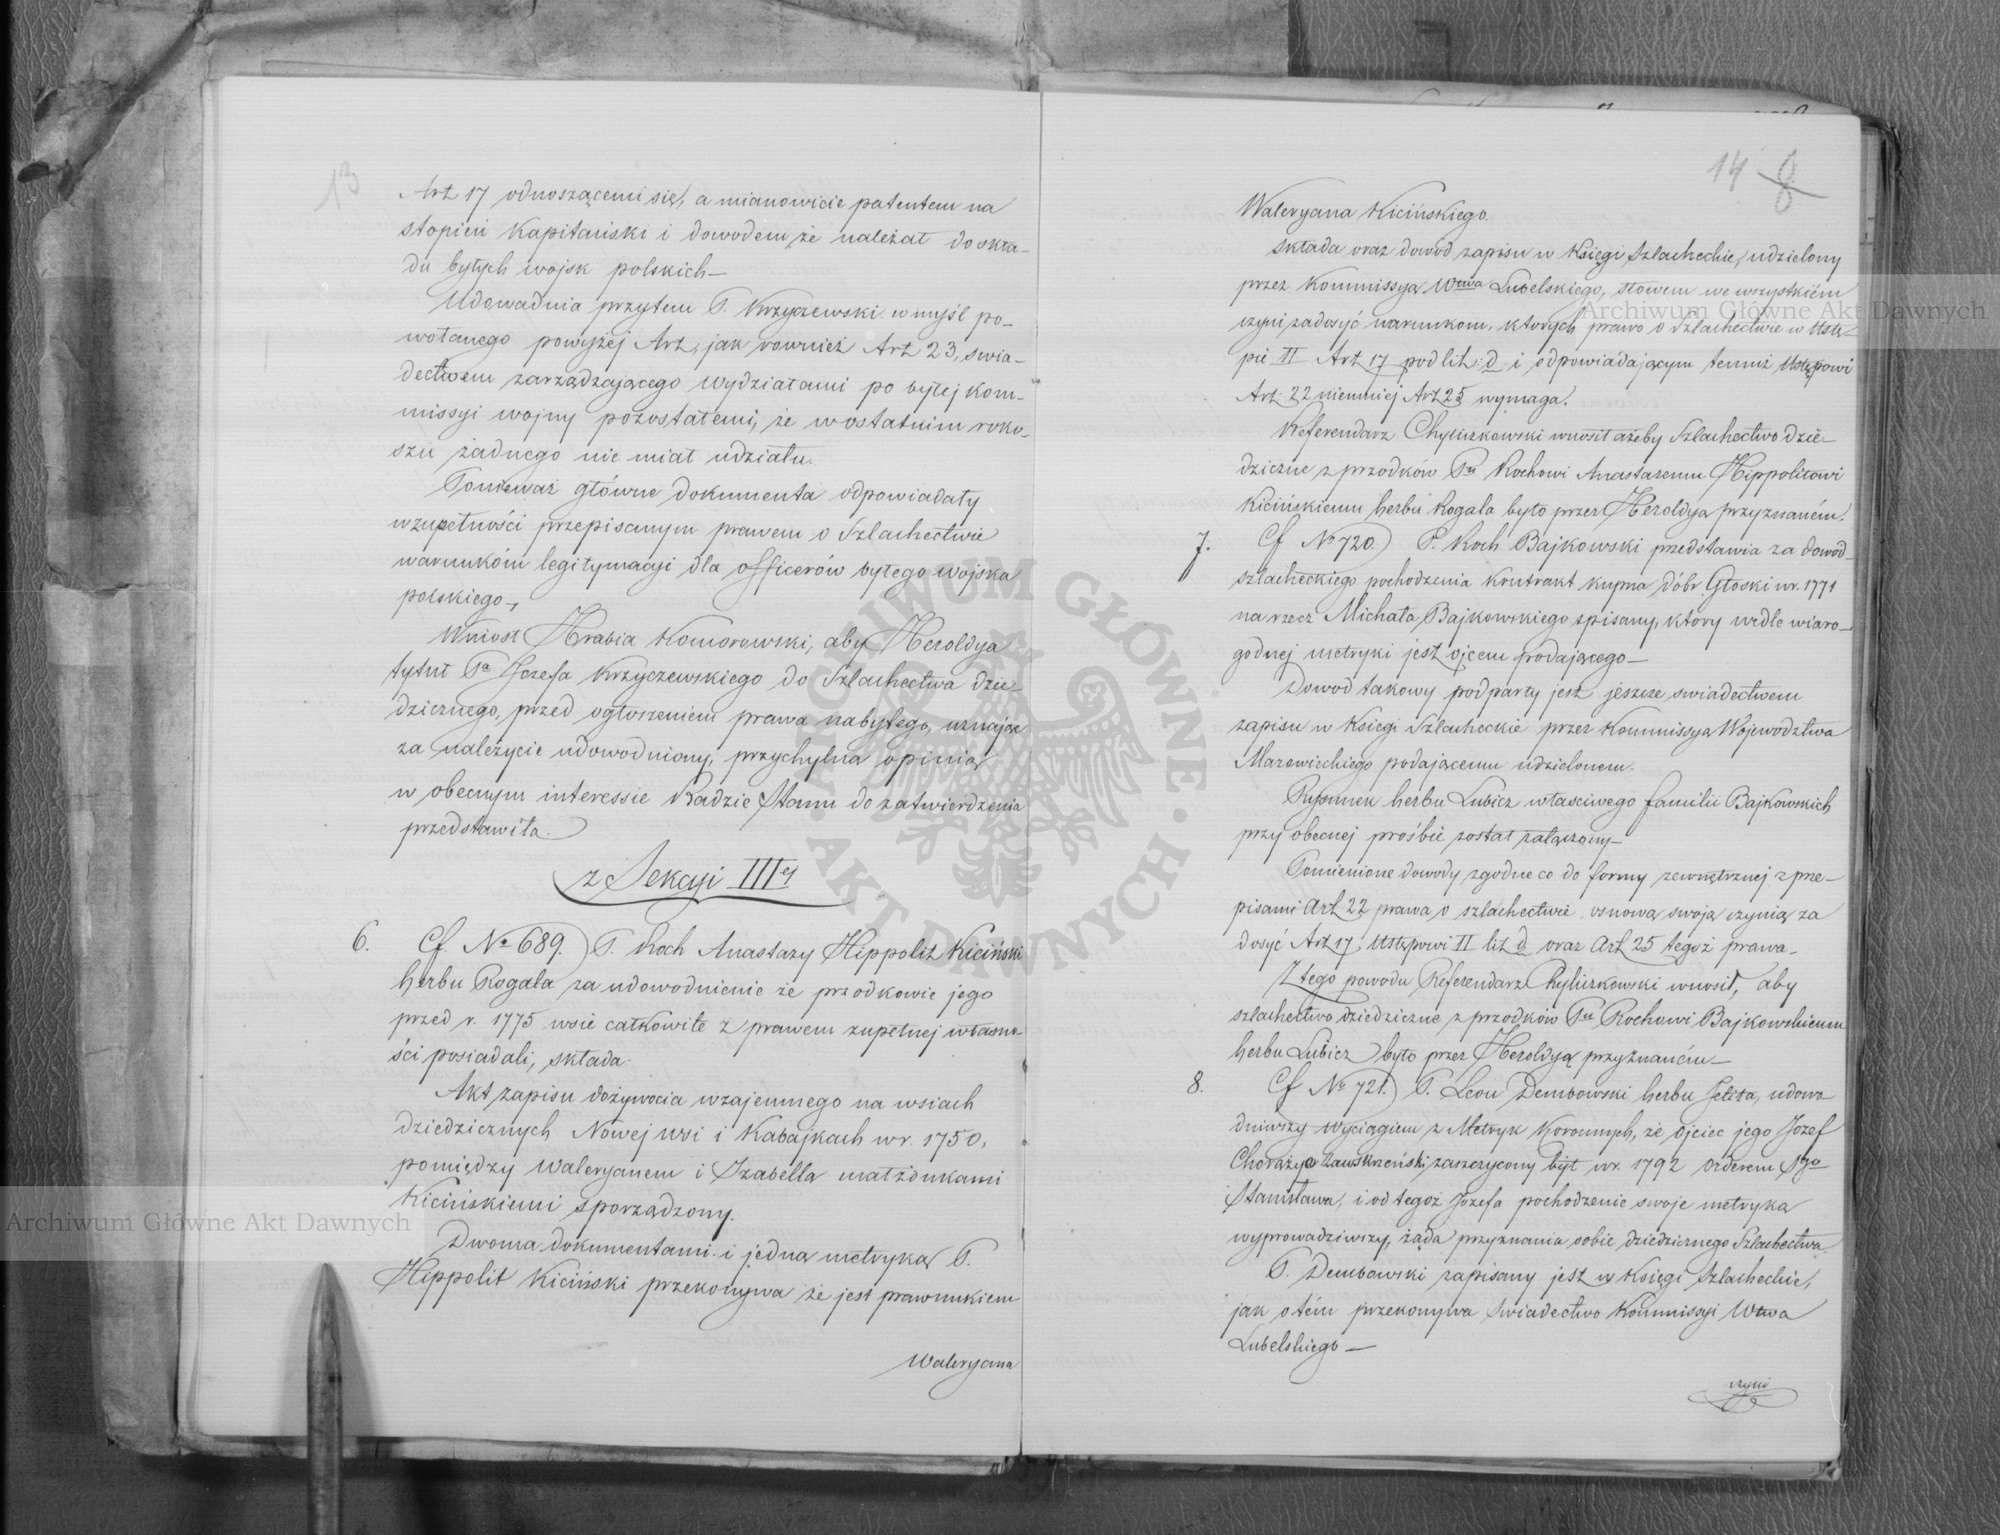 13
Art 17 odnoszącemi się, a mianowicie patentem na
stopień Kapitański i dowodem że należał do skła-
du byłych wojsk polskich—
Udowadnia przytem P. Krzyczewski w myśl po-
wołanego powyżej Art, jak również Art 23, swia-
dectwem zarządzającego wydziałami po byłej kom-
missyi wojny pozostałemi, że w ostatnim roko-
szu żadnego nie miał udziału.
Ponieważ główne dokumenta odpowiadały
w zupełności przepisanym prawem o Szlachectwie
warunkóm legitymacyi dla officerów byłego wojska
polskiego,
Wniosł Hrabia Komorowski, aby Heroldya
tytuł Pa Józefa Krzyczewskiego do Szlachectwa dzie-
dzicznego, przed ogłoszeniem prawa nabytego, uznając
za należycie udowodniony, przychylną opinią
w obecnym interessie Radzie Stanu do zatwierdzenia
przedstawiła.
z Sekcyi IIIej
6. Cf No 689.) P. Roch Anastazy Hippolit Kiciński
herbu Rogala za udowodnienie że przodkowie jego
przed r. 1775 wsie całkowite z prawem zupełnej własno
ści posiadali, składa:
Akt zapisu dożywocia wzajemnego na wsiach
dziedzicznych Nowej wsi i Kabajkach w r. 1750,
pomiędzy Waleryanem i Izabellą małżonkami
Kicińskiemi sporządzony.
Dwoma dokumentami i jedną metryką P.
Hippolit Kiciński przekonywa że jest prawnukiem
Waleryana
14 8
Waleryana Kicińskiego.
Składa oraz dowód zapisu w Księgi Szlacheckie, udzielony
przez Kommissyą Wtwa Lubelskiego, słowem we wszystkiém
czyni zadosyć warunkom, ktorych prawo o Szlachectwie w Ustę-
pie II Art 17 pod lit: d i odpowiadającym temuż Ustępowi
Art: 22 niemniej Art 25 wymaga.
Referendarz Chyliczkowski wnosił ażeby Szlachectwo dzie-
dziczne z przodków Pu Rochowi Anastazemu Hippolitowi
Kicińskiemu herbu Rogala było przez Heroldyą przyznaném.
7. Cf No 720.) P. Roch Bajkowski przedstawia za dowod
szlacheckiego pochodzenia Kontrakt Kupna dóbr Głoski w r. 1771
na rzecz Michała Bajkowskiego spisany, który wedle wiaro-
godnej metryki jest ojcem podającego—
Dowod takowy podparty jest jeszcze swiadectwem
zapisu w Księgi Szlacheckie przez Kommissyą Województwa
Mazowieckiego podającemu udzielonem.
Rysunek herbu Lubicz własciwego familii Bajkowskich
przy obecnej prośbie został załączony—
Pomienione dowody zgodne co do formy zewnętrznej z prze-
pisami Art 22 prawa o szlachectwie osnową swoją czynią za
dosyć Art 17, Ustępowi II lit d oraz Art 25 tegoż prawa—
Z tego powodu Referendarz Chyliczkowski wnosił, aby
szlachectwo dziedziczne z przodków Pu Rochowi Bajkowskiemu
herbu Lubicz było przez Heroldyą przyznaném—
8. Cf No 721.) P. Leon Dembowski herbu Jelita, udowo
dniwszy wyciągiem z Metryk Koronnych, że ojciec jego Józef
Chorąży zaszczycony był w r. 1792 orderem Sgo
Stanisława, i od tegoż Józefa pochodzenie swoje metryką
wyprowadziwszy, żąda przyznania sobie dziedzicznego Szlachectwa.
P. Dembowski zapisany jest w Księgi Szlacheckie,
jak o tém przekonywa Swiadectwo Kommissyi Wtwa
Lubelskiego—
czyni
Archiwum Główne Akt Dawnych
Archiwum Główne Akt Dawnych
ARCHIWUM GŁÓWNE • AKT DAWNYCH •